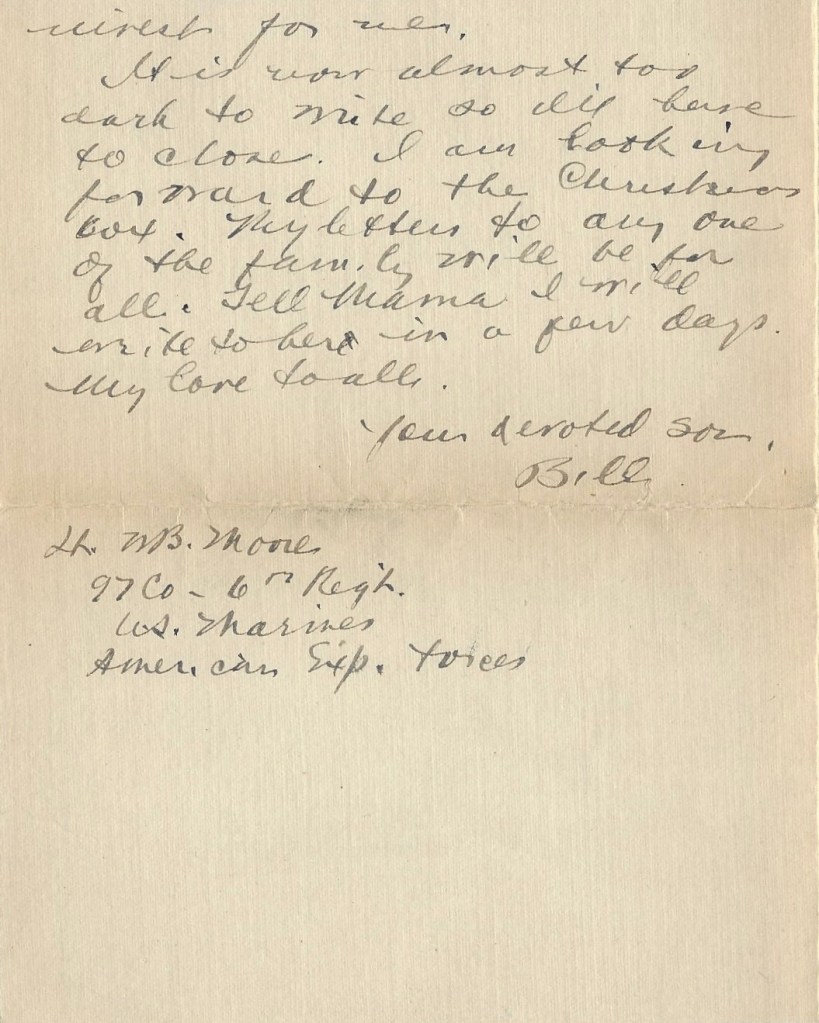 invest for me.
It is now almost too
dark to write so I'll have
to close. I am looking
forward to the Christmas
box. My letters to any one
of the family will be for
all. Tell Mama I will
write to her in a few days.
My love to all.
Your devoted son,
Bill.
Lt. W.B. Moore
97 Co - 6th Regt.
U.S. Marines
American Exp. Forces